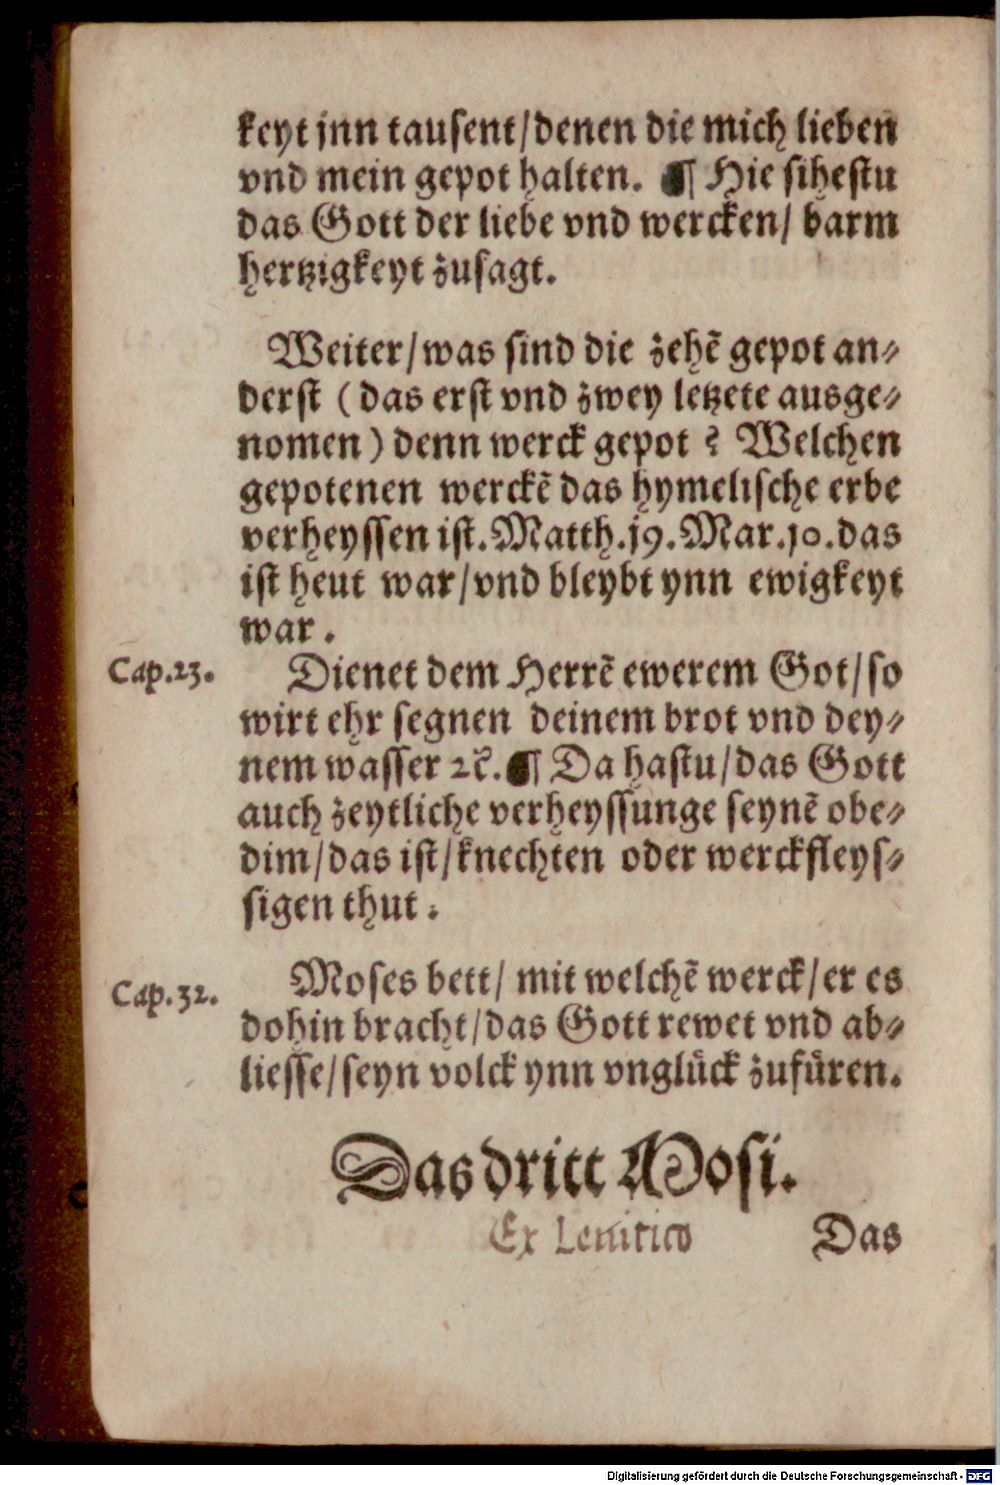 keyt jnn tausent/denen die mich lieben
vnd mein gepot halten. ¶ Hie sihestu
das Gott der liebe vnd wercken/ barm
hertzigkeyt zusagt.
Weiter/was sind die zehē gepot an⸗
derst (das erst vnd zwey letzete ausge⸗
nomen) denn werck gepot? Welchen
gepotenen werckē das hymelische erbe
verheyssen ist. Matth.19. Mar.10. das
ist heut war/vnd bleybt ynn ewigkeyt
war.
Cap.23. Dienet dem Herrē ewerem Got/so
wirt ehr segnen deinem brot vnd dey⸗
nem wasser ꝛc̄. ¶ Da hastu/das Gott
auch zeytliche verheyssunge seynē obe⸗
dim/das ist/knechten oder werckfleys⸗
sigen thut.
Cap.32. Moses bett/ mit welchē werck/er es
dohin bracht/das Gott rewet vnd ab⸗
liesse/seyn volck ynn vnglück zufüren.
Das dritt Mosi.
Ex Leuitico Das
Digitalisierung gefördert durch die Deutsche Forschungsgemeinschaft - DFG